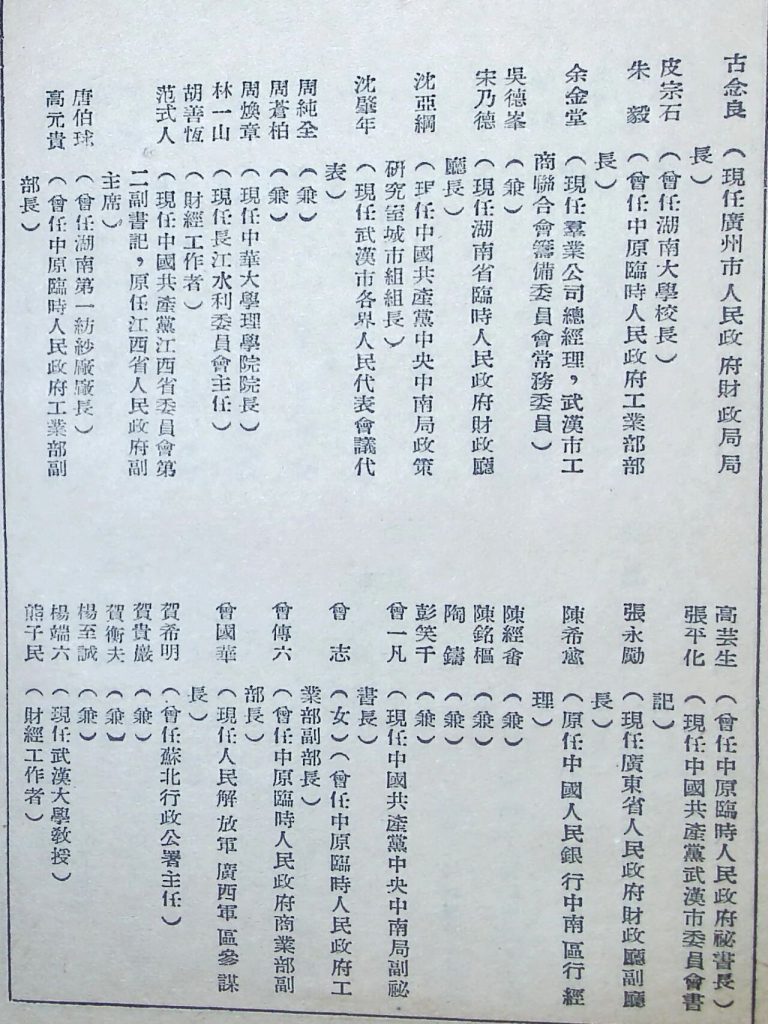 古念良（現任廣州市人民政府財政局局
長）
皮宗石（曾任湖南大學校長）
朱　毅（曾任中原臨時人民政府工業部部
長）
余金堂（現任羣業公司總經理，武漢市工
商聯合會籌備委員會常務委員）
吳德峯（兼）
宋乃德（現任湖南省臨時人民政府財政廳
廳長）
沈亞綱（現任中國共產黨中央中南局政策
研究室城市組組長）
沈肇年（現任武漢市各界人民代表會議代
表）
周純全（兼）
周蒼柏（兼）
周煥章（現任中華大學理學院院長）
林一山（現任長江水利委員會主任）
胡善恆（財經工作者）
范式人（現任中國共產黨江西省委員會第
二副書記，原任江西省人民政府副
主席）
唐伯球（曾任湖南第一紡紗廠廠長）
高元貴（曾任中原臨時人民政府工業部副
部長）
高芸生（曾任中原臨時人民政府祕書長）
張平化（現任中國共產黨武漢市委員會書
記）
張永勵（現任廣東省人民政府財政廳副廳
長）
陳希愈（原任中國人民銀行中南區行經
理）
陳經畬（兼）
陳銘樞（兼）
陶　鑄（兼）
彭笑千（兼）
曾一凡（現任中國共產黨中央中南局副祕
書長）
曾　志（女）（曾任中原臨時人民政府工
業部副部長）
曾傳六（曾任中原臨時人民政府商業部副
部長）
曾國華（現任人民解放軍廣西軍區參謀
長）
賀希明（曾任蘇北行政公署主任）
賀貴嚴（兼）
賀衡夫（兼）
楊至誠（兼）
楊端六（現任武漢大學教授）
熊子民（財經工作者）